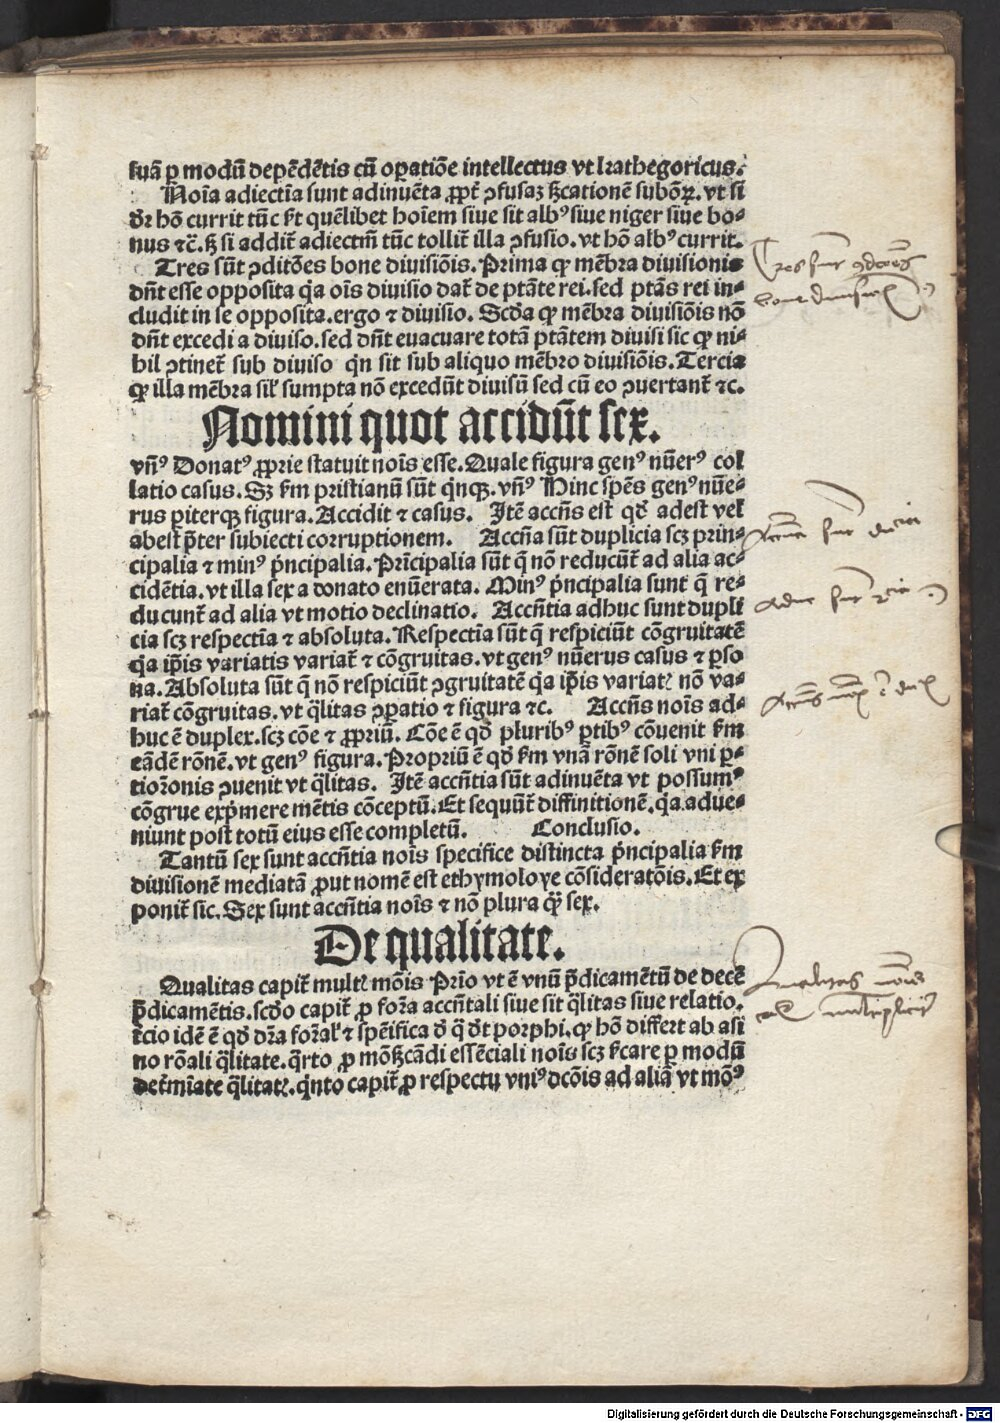 suā ꝑ modū depēdētis cū oꝑatiōe intellectus vt kathegoricus.
Noīa adiectīa sunt adinuēta ꝓpt̄ ꝯfusaꝫ ſſcationē subōꝝ. vt si
dr̄ hō currit tūc ſt quēlibet hoīem siue sit albꝰ siue niger siue bo-
nus ⁊c̄. sꝫ si addit̄ adiectm̄ tūc tollit̄ illa ꝯfusio. vt hō albꝰ currit.
Tres sūt ꝯditōes bone diuisiōis. Prima ꝙ mēbra diuisionis
dn̄t esse opposita q̄a oīs diuisio dat̄ de ptāte rei. sed ptās rei in-
cludit in se opposita. ergo ⁊ diuisio. Scd̄a ꝙ mēbra diuisiōis nō
dn̄t excedi a diuiso. sed dn̄t euacuare totā ptātem diuisi sic ꝙ ni-
hil ꝯtinet̄ sub diuiso qn̄ sit sub aliquo mēbro diuisiōis. Tercia
ꝙ illa mēbra sil̄ sumpta nō excedūt diuisū sed cū eo ꝯuertant̄ ⁊c.
Nomini quot accidūt sex.
vn̄ꝰ Donatꝰ ꝓprie statuit noīs esse. Quale figura genꝰ nūerꝰ col
latio casus. Sꝫ ẜm pristianū sūt qn̄qꝫ. vn̄ꝰ Hinc spēs genꝰ nūe-
rus piterqꝫ figura. Accidit ⁊ casus. Itē accn̄s est qd̄ adest vel
abest p̄ter subiecti corruptionem. Accn̄a sūt duplicia scꝫ prin-
cipalia ⁊ minꝰ p̄ncipalia. Prīcipalia sūt q̄ nō reducūt̄ ad alia ac-
cidētia. vt illa sex a donato enūerata. Minꝰ p̄ncipalia sunt q̄ re-
ducunt̄ ad alia vt motio declinatio. Accn̄tia adhuc sunt dupli
cia scꝫ respectīa ⁊ absoluta. Respectīa sūt q̄ respiciūt cōgruitatē
q̄a ip̄is variatis variat̄ ⁊ cōgruitas. vt genꝰ nūerus casus ⁊ ꝑso
na. Absoluta sūt q̄ nō respiciūt ꝯgruitatē q̄a ip̄is variatꝭ nō va-
riat̄ cōgruitas. vt q̄litas ꝯꝑatio ⁊ figura ⁊c. Accn̄s noīs ad-
huc ē duplex. scꝫ cōe ⁊ ꝓpriū. Cōe ē qd̄ pluribꝰ ꝑtibꝰ cōuenit ẜm
eādē rōnē. vt genꝰ figura. Propriū ē qd̄ ẜm vnā rōnē soli vni ꝑ-
ti orōnis ꝯuenit vt q̄litas. Itē accn̄tia sūt adinuēta vt possumꝰ
cōgrue exp̄mere mētis cōceptū. Et sequūt̄ diffinitionē. q̄a adue-
niunt post totū eius esse completū. Conclusio.
Tantū sex sunt accn̄tia noīs specifice distincta p̄ncipalia ẜm
diuisionē mediatā ꝓut nomē est ethymoloye cōsideratōis. Et ex
ponit̄ sic. Sex sunt accn̄tia noīs ⁊ nō plura qͣꝫ sex.
De qualitate.
Qualitas capit̄ multꝭ mōis Prīo vt ē vnū p̄dicamētū de decē
p̄dicamētis. scd̄o capit̄ ꝓ forā accn̄tali siue sit q̄litas siue relatio.
t̄cio idē ē qd̄ dr̄a forāl̄ ⁊ spēifica d̄ q̄ dt̄ porphi. ꝙ hō differt ab asi
no rōali q̄litate. q̄rto ꝓ mōſſcādi essēciali noīs scꝫ ſſcare ꝑ modū
det̄mīate q̄litatꝭ. qn̄to capit̄ ꝓ respectu vniꝰ dcōis ad aliā vt mōꝰ
Tres sunt
bone diuisionis
Accn̄tia sunt
Adhuc sunt
Accn̄s
Qualitas nōis
multiplicit̄
Digitalisierung gefördert durch die Deutsche Forschungsgemeinschaft - DFG